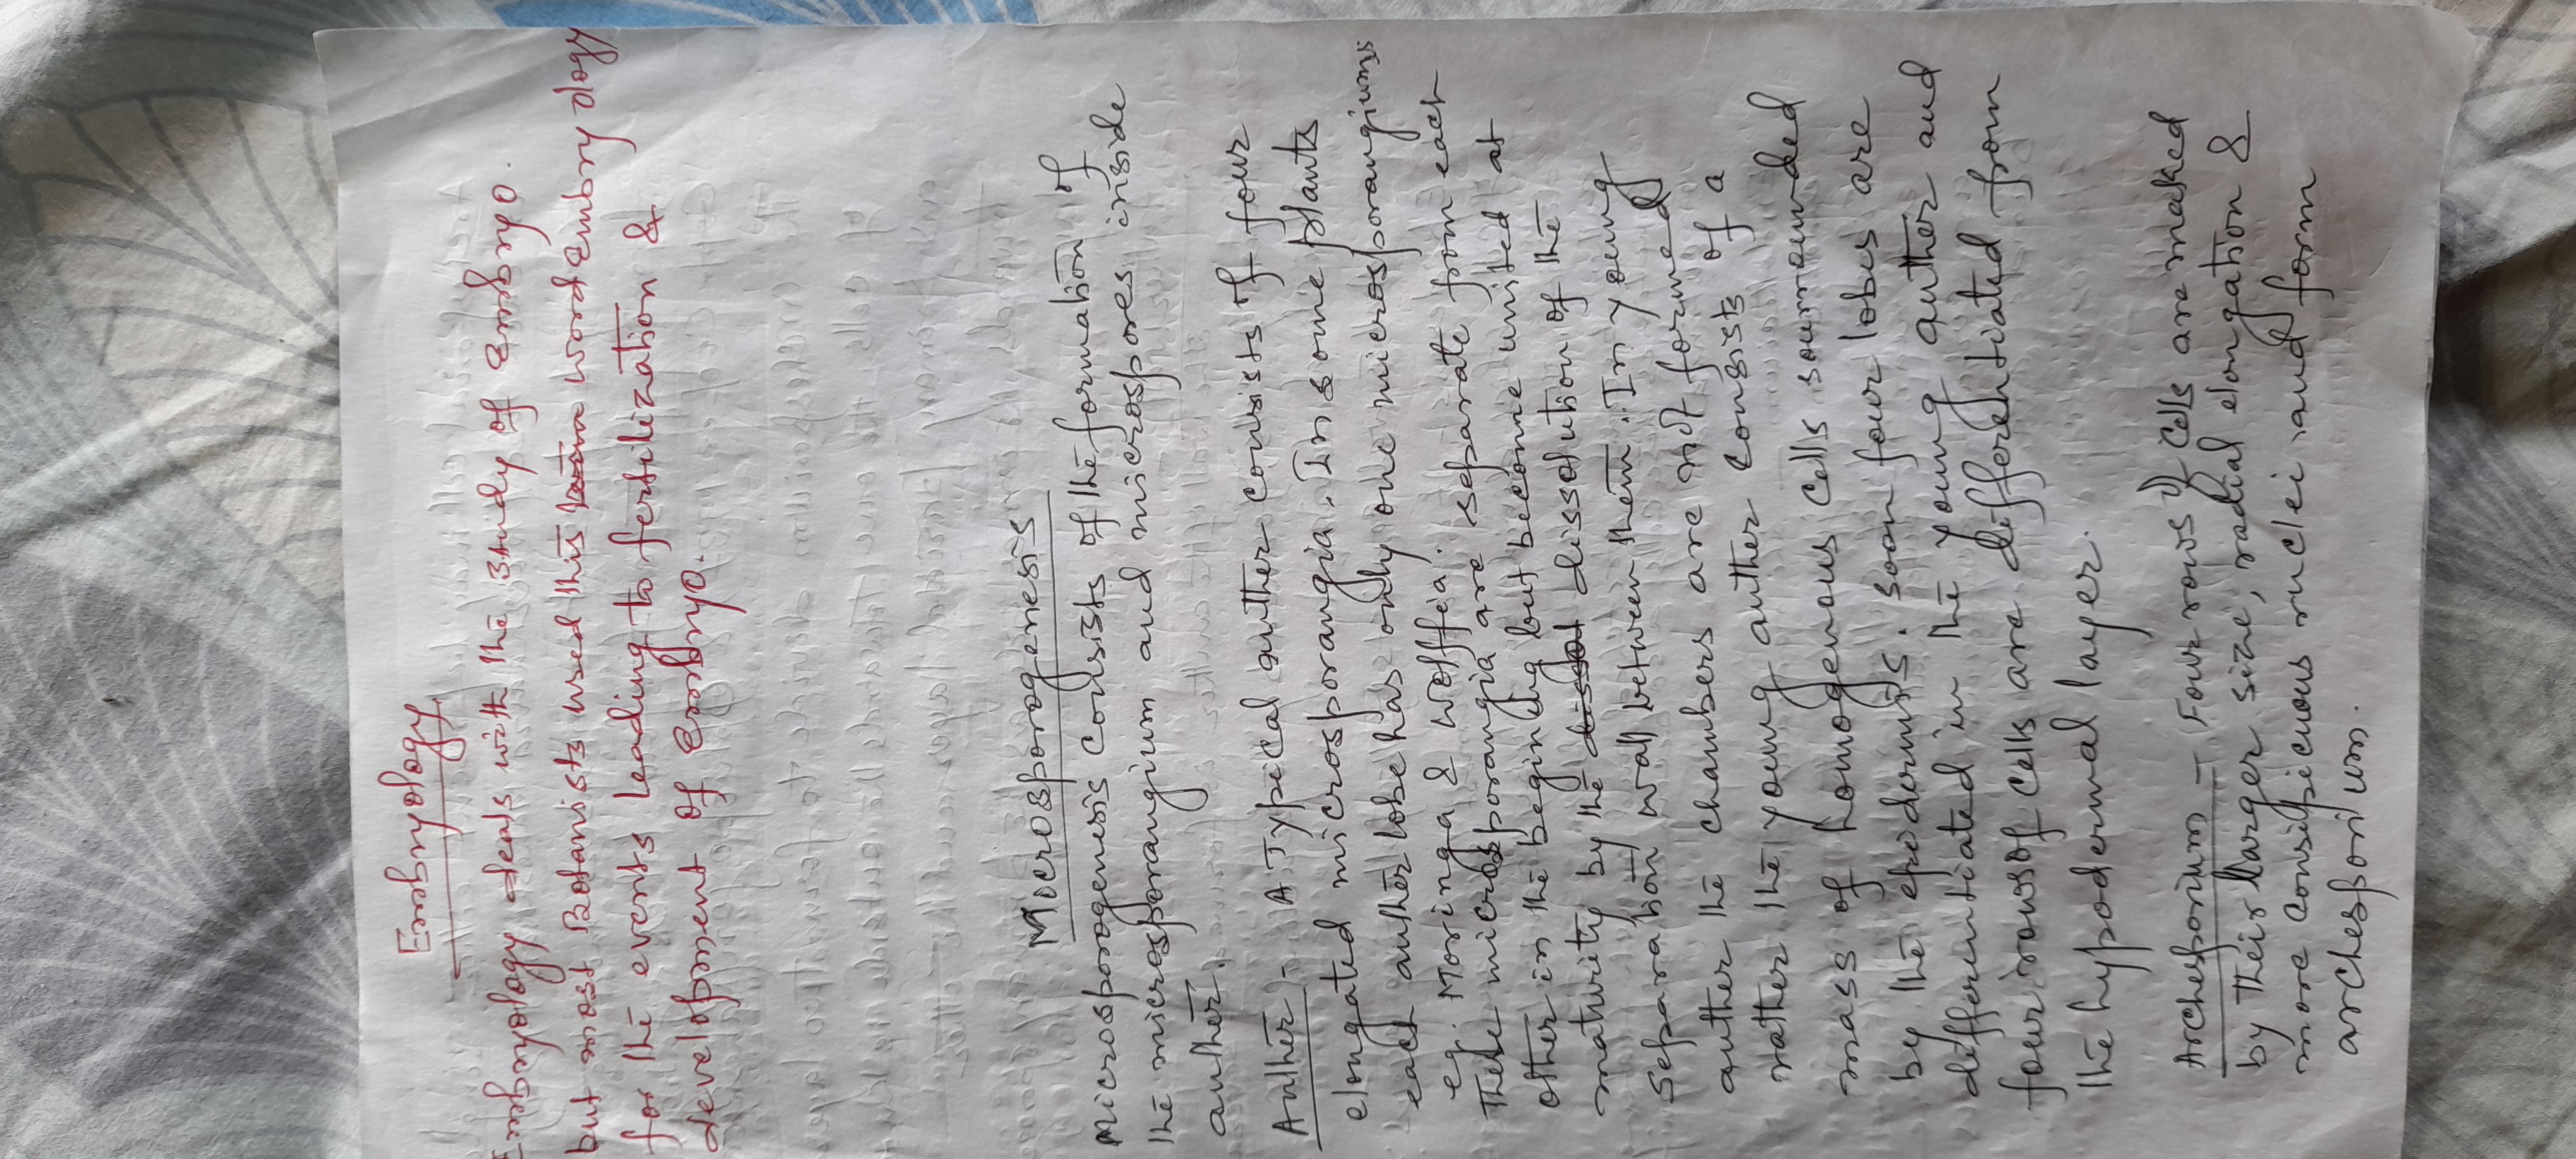 Embryology
Embryology deals with the study of Embryo.
but most Botanists used this word Embryology
for the events leading to fertilization &
development of Embryo.
Microsporogenesis
Microsporogenesis consists of the formation of
the microsporangium and microspores inside
anther.
Anther - A Typical anther consists of four
elongated microsporangia. In some plants
each anther lobe has only one microsporangiums
eg. Moringa & Wolffia.
These microsporangia are separate from each
other in the begining but become united at
maturity by the dissolution of the
separation wall between them. In young
anther the chambers are not formed
rather the young anther consists of a
mass of homogenous cells sourrounded
by the epidermis. soon four lobes are
differentiated in the young anther and
four rows of cells are differentiated from
the hypodermal layer.
Archesporium - Four rows of cells are maked
by their larger size, radial elongation &
more conspicuous nuclei and form
archesporium.